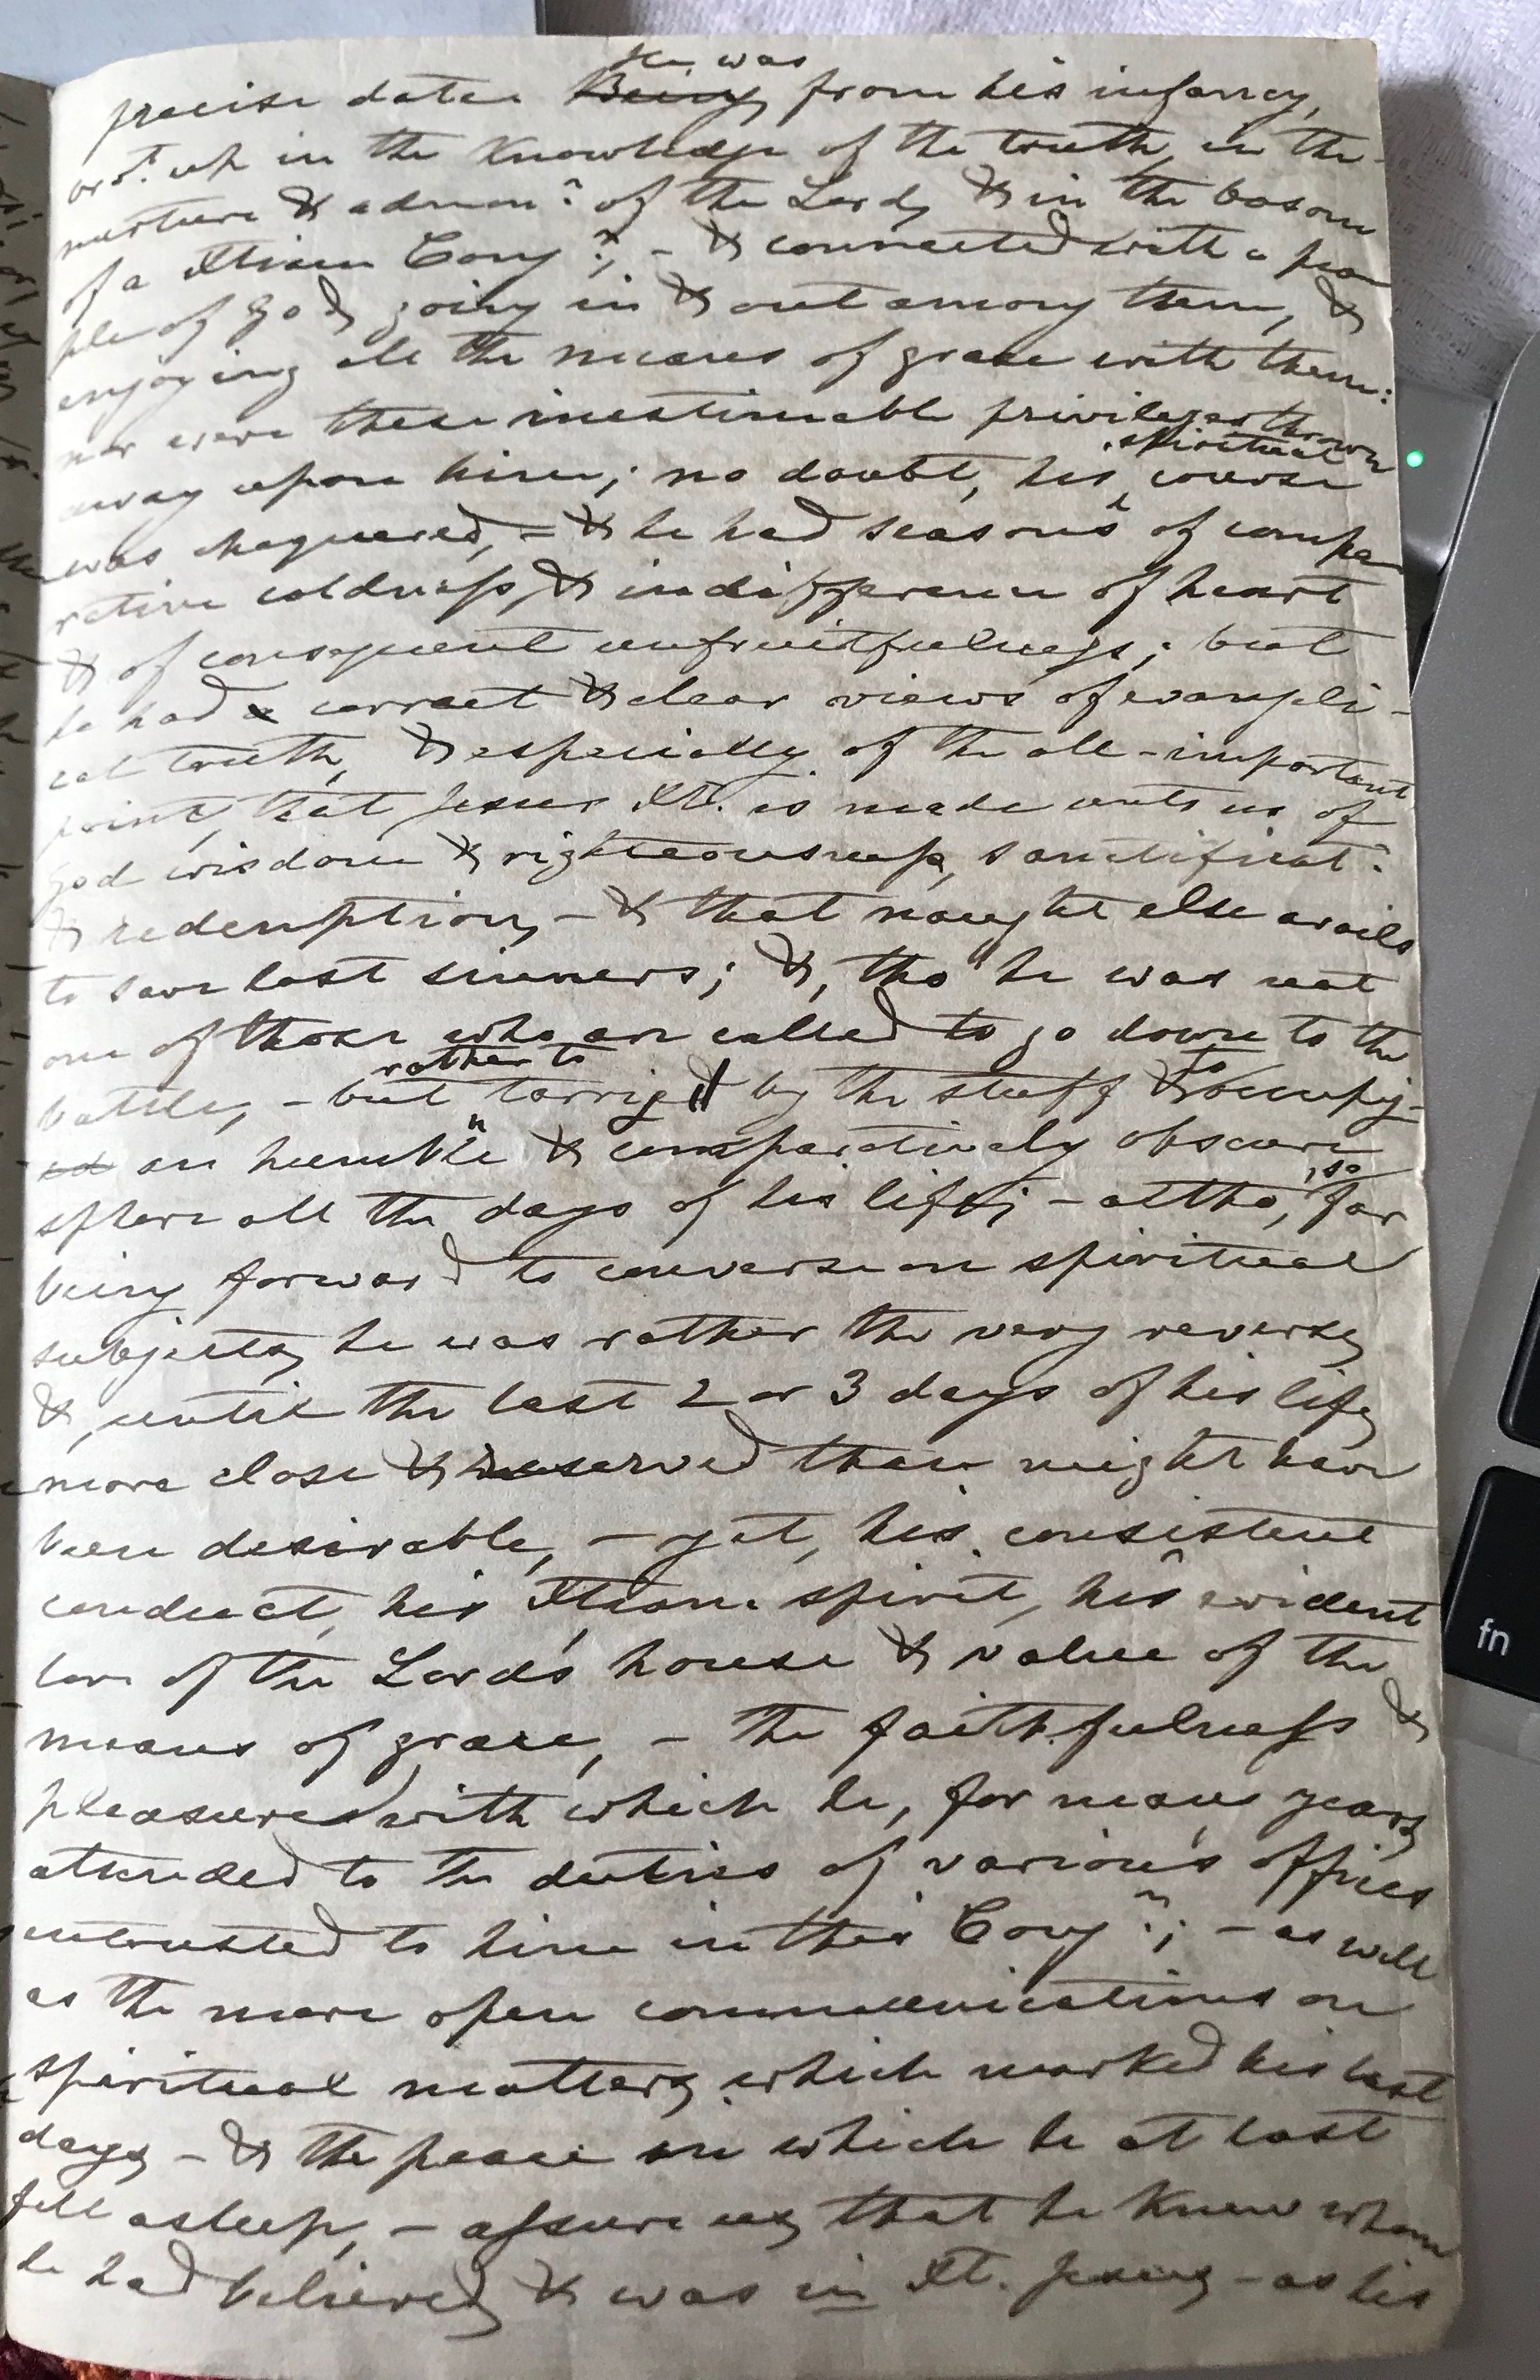 He was
precise date. Being from his infancy,
bro.t up in the knowledge of the truth, in the
nurture & admon.n of the Lord, & in the bosom
of a Xtian Cong.n, - & connected with a peo
ple of God, going in & out among them, &
enjoying all the means of grace with them:
nor were these inestimable privileges thrown
spiritual
away upon him; no doubt, his course
was chequered, - & he had seasons of compa
rative coldness, & indifference of heart
& of consequent unfruitfulness; but
he had a correct & clear views of evangeli-
cal truth, & especially of the all-important
point, that Jesus Xt. is made unto us of
God wisdom & righteousness, sanctificat.n
& redemption, - & that nought else avails
to save lost sinners; &, tho' he was not
one of those who are called to go down to the
rather to to
battle, - but tarried by the stuff & occupy-
ed an humble & comparatively obscure
, so
sphere all the days of his life; - altho', far
being forward to converse on spiritual
subjects, he was rather the very reverse,
&, until the last 2 or 3 days of his life,
more close & reserved than might have
been desirable, - yet, his consistent
conduct, his Xtian spirit, his evident
love of the Lord's house & value of the
means of grace, - the faithfulness &
pleasure with which he, for many years,
attended to the duties of various offices
entrusted to him in this Cong.n; - as well
as the more open communications on
spiritual matters, which marked his last
days, - & the peace in which he at last
fell asleep, - assure us, that he knew whom
he had believed, & was in Xt. Jesus, - as his